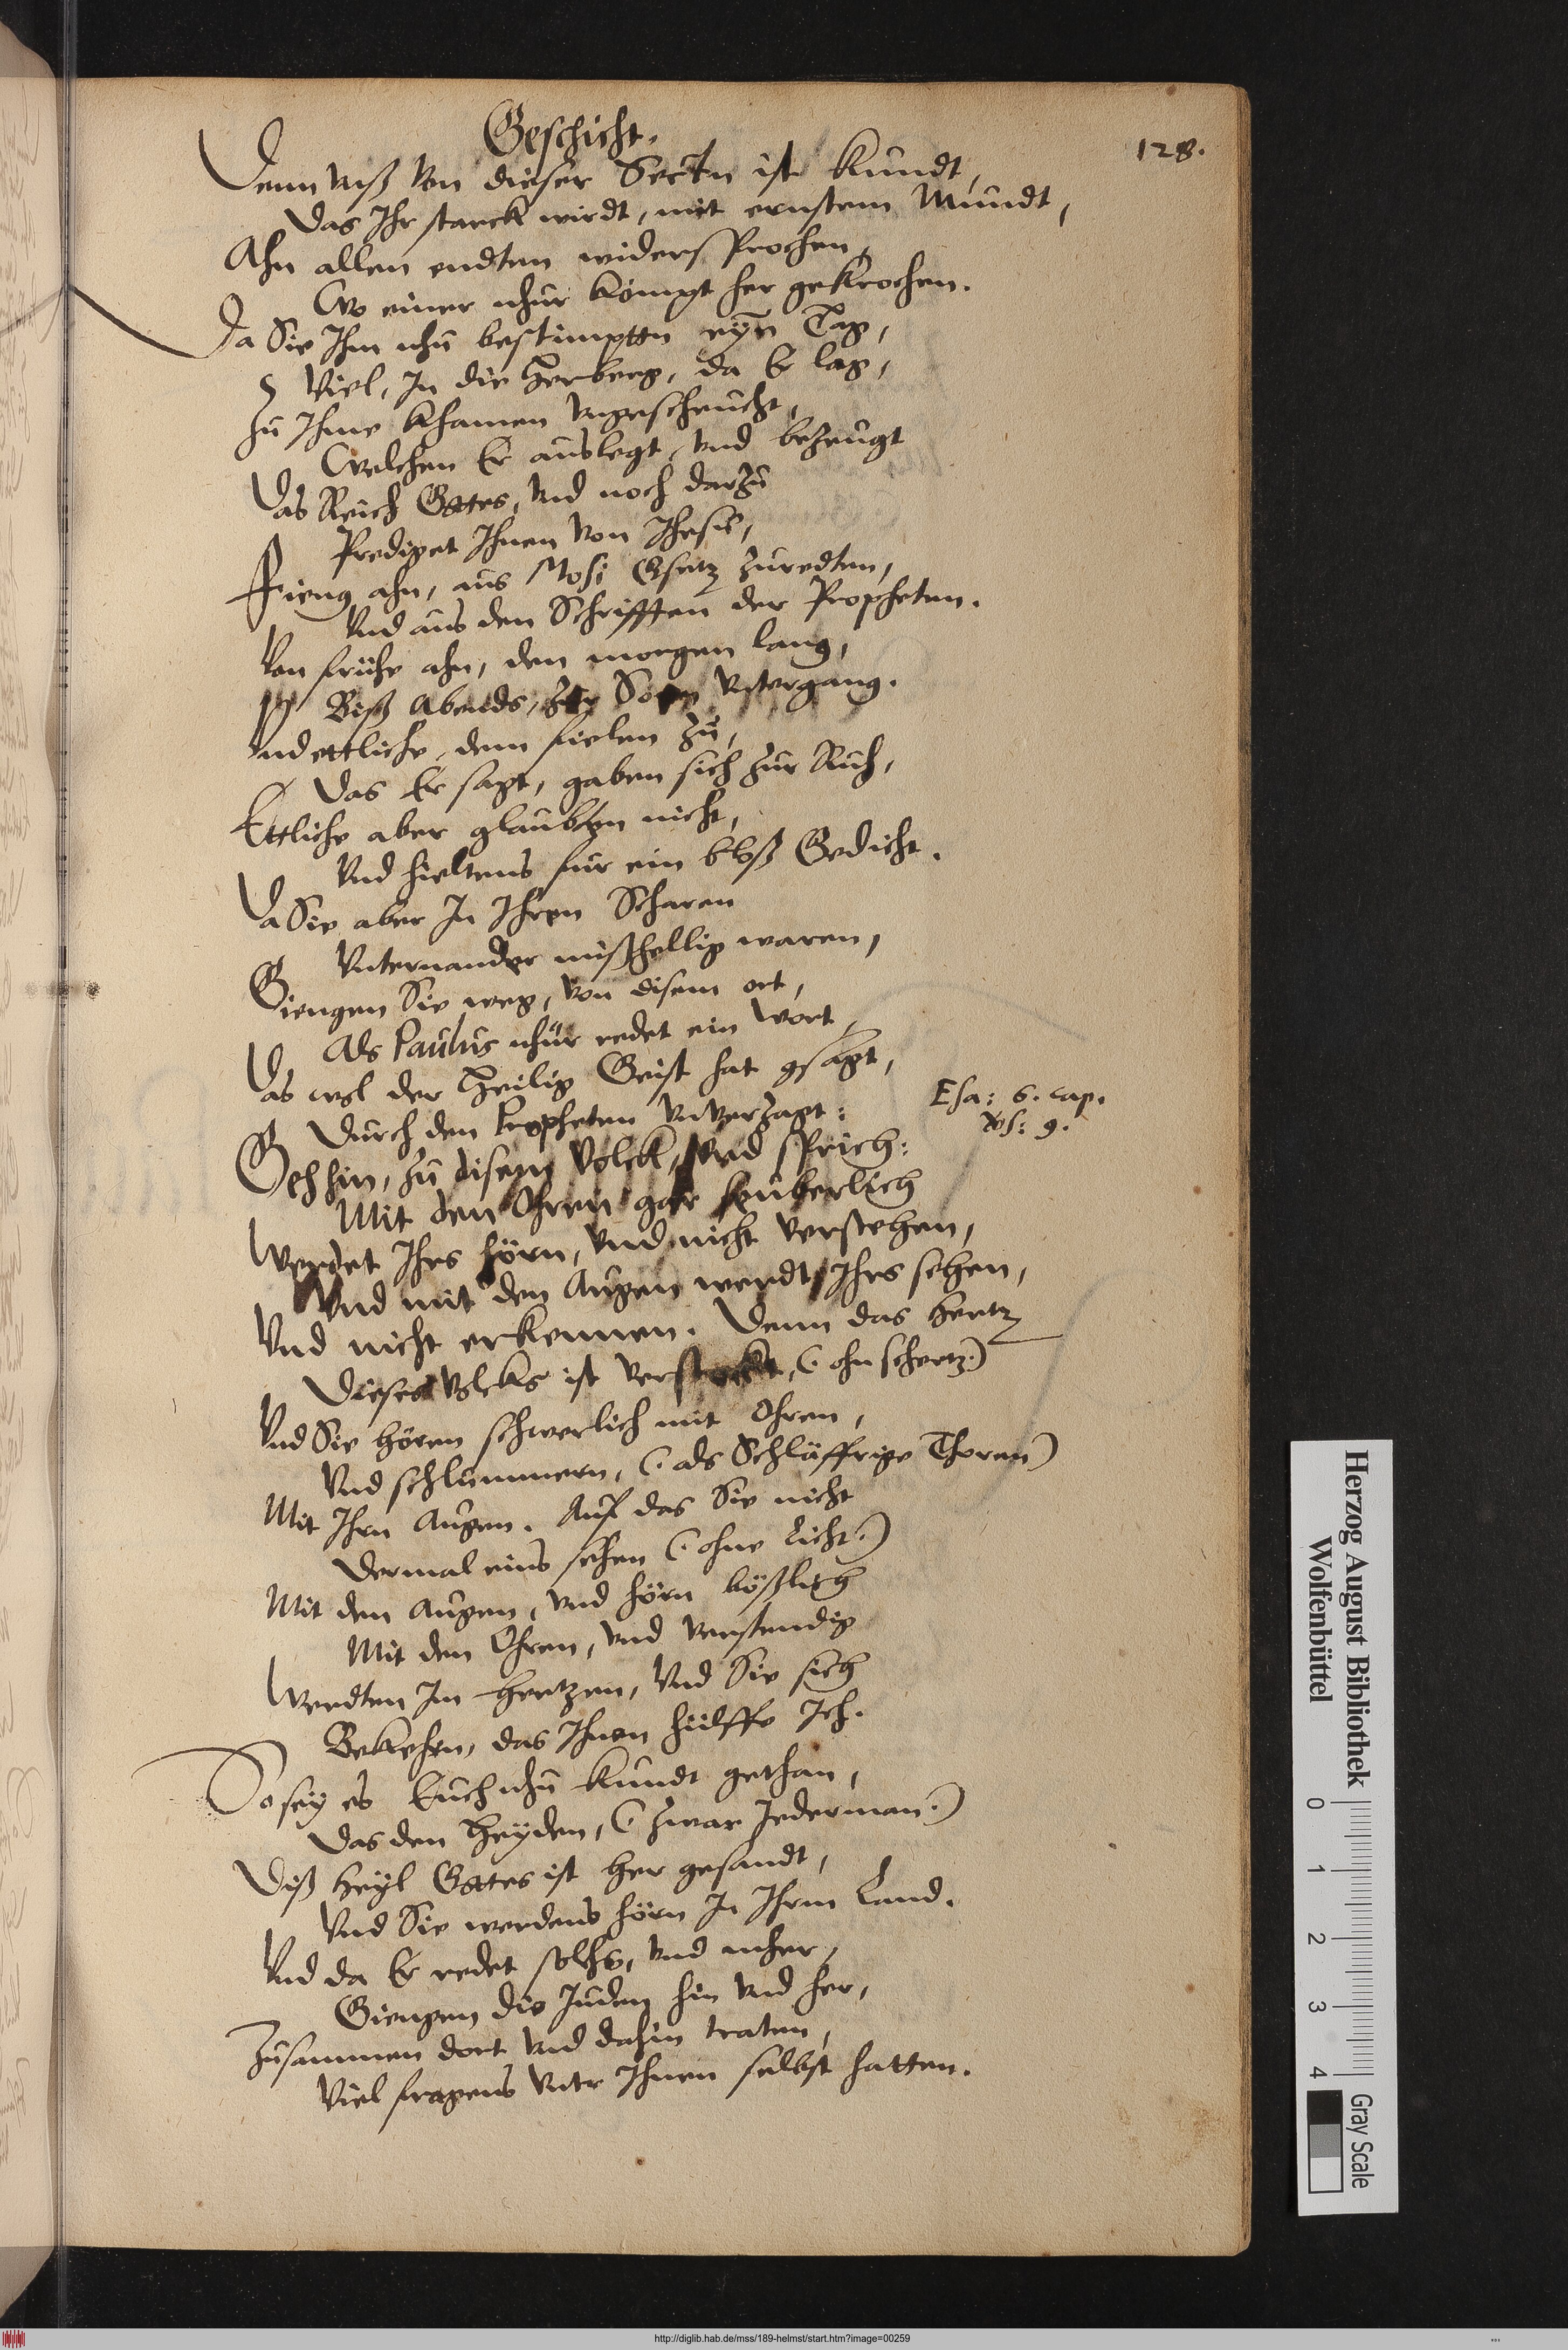 Geschicht.
128.
Denn vnß von dieser Secten ist kundt,
Das Ihr starck wirdt, mit ernstem Mundt,
Ahn allen endten widersprochen,
Wo einer nhur kompt her gekrochen.
Da Sie Ihm nhu bestimpten eyn Tag,
Viel, In die Herberg, da Er lag,
Zu Ihme khamen vngescheucht,
Welchen Er auslegt, vnd bezeugt
Das Reich Gottes, vnd noch darzu
Prediget Ihnen von Ihesu,
Fieng ahn, aus Mosi Gsetz zuredten,
Vnd aus den Schrifften der Propheten.
Von frühe ahn, den morgen lang,
Biß Abends, zur Sonn vntergang.
Vnd ettliche, dem fielen zu,
Das Er sagt, gaben sich zur Ruh,
Ettliche aber glaubten nicht,
Vnd hieltens fur ein bloß Gedicht.
Da Sie aber In Ihren Scharen
Vnternander mißhellig waren,
Giengen Sie weg, von disem ort,
Als Paulus nhur redet ein Wort,
Das wol der Heilig Geist hat gsagt,
Durch den Propheten vnverzagt:
Esa: 6. cap.
vs: 9.
Geh hin, zu disem Volck, vnd sprich:
Mit den Ohren gar seuberlich
Werdet Ihrs hörn, vnd nicht verstehen,
Vnd mit den Augen werdt Ihrs sehen,
Vnd nicht erkennen. Denn das Hertz
Dieses Volcks ist verstockt, (. ohn schertz.)
Vnd Sie hören schwerlich mit Ohren,
Vnd schlummern, (. als Schläffrige Thoren)
Mit Ihrn Augen. Auf das Sie nicht
Dermal eins sehen (. ohne Licht.)
Mit den Augen, vnd hörn bößlich
Mit den Ohren, vnd verstendig
Werdten Im Hertzen, Vnd Sie sich
Bekehrn, das Ihnen hülffe Ich.
So sey es Euch nhu kundt gethan,
Das den Heyden, (. zwar Iederman.)
Diß Heyl Gottes ist her gesandt,
Vnd Sie werdens hörn In Ihrm Land.
Vnd da Er redet solchs, vnd mher,
Giengen die Juden hin vnd her,
Zusammen dort vnd dahin traten,
Viel fragens vntr Ihnen selbst hatten.
Herzog August Bibliothek
Wolfenbüttel
0 1 2 3 4
Gray Scale
http://diglib.hab.de/mss/189-helmst/start.htm?image=00259